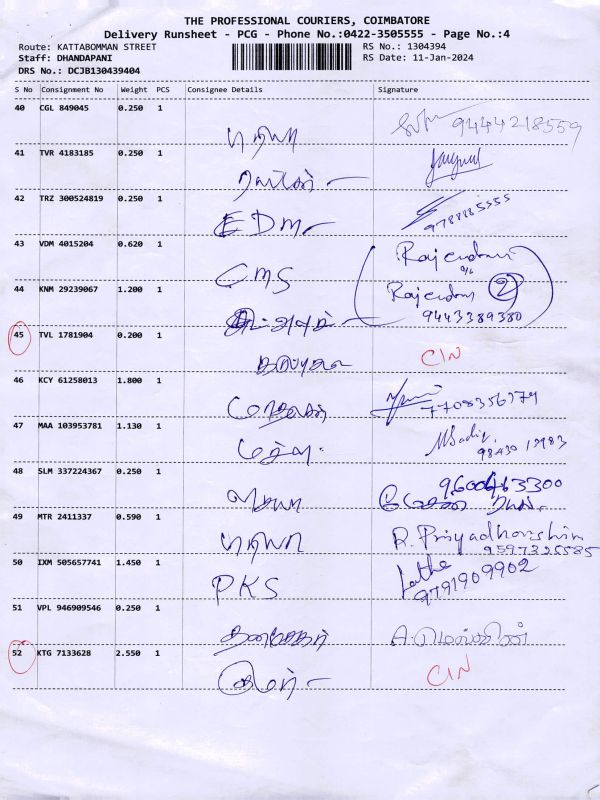 THE PROFESSIONAL COURIERS, COIMBATORE
Delivery Runsheet - PCG - Phone No.:0422-3505555 - Page No.:4
Route: KATTABOMMAN STREET
RS No.: 1304394
Staff: DHANDAPANI
RS Date: 11-Jan-2024
DRS No.: DCJB130439404
S No Consignment No Weight PCS Consignee Details Signature
40 CGL 849045 0.250 1
பிரியா 9444218559
41 TVR 4183185 0.250 1
42 TRZ 300524819 0.250 1
EDM 9788885555
43 VDM 4015204 0.620 1
CMS Rajendran
44 KNM 29239067 1.200 1
Rajendran 2
9443389380
45 TVL 1781904 0.200 1
CIN
46 KCY 61258013 1.800 1
7708356779
47 MAA 103953781 1.130 1
MSadiq
98430 13983
48 SLM 337224367 0.250 1
9600463300
49 MTR 2411337 0.590 1
பிரியா R. Priyadharshini
9597325585
50 IXM 505657741 1.450 1
PKS Latha
9791909902
51 VPL 946909546 0.250 1
52 KTG 7133628 2.550 1
குமார் CIN